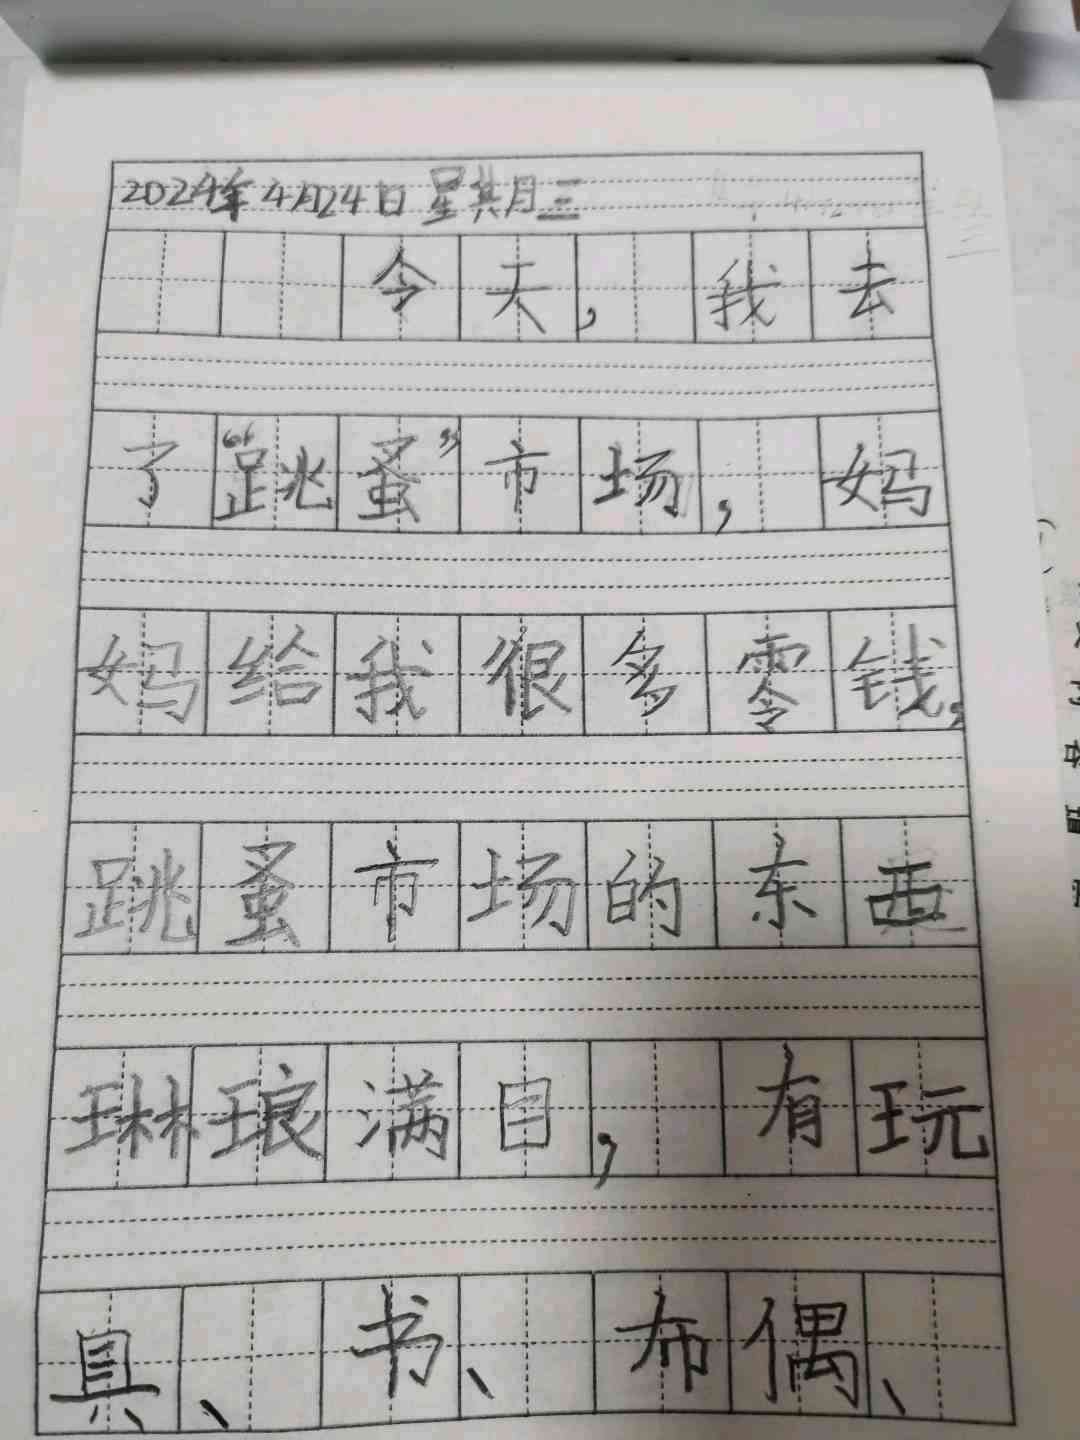 2024年4月24日 星期三
今天，我去
了“跳蚤”市场，妈
妈给我很多零钱，
跳蚤市场的东西
琳琅满目，有玩
具、书、布偶、